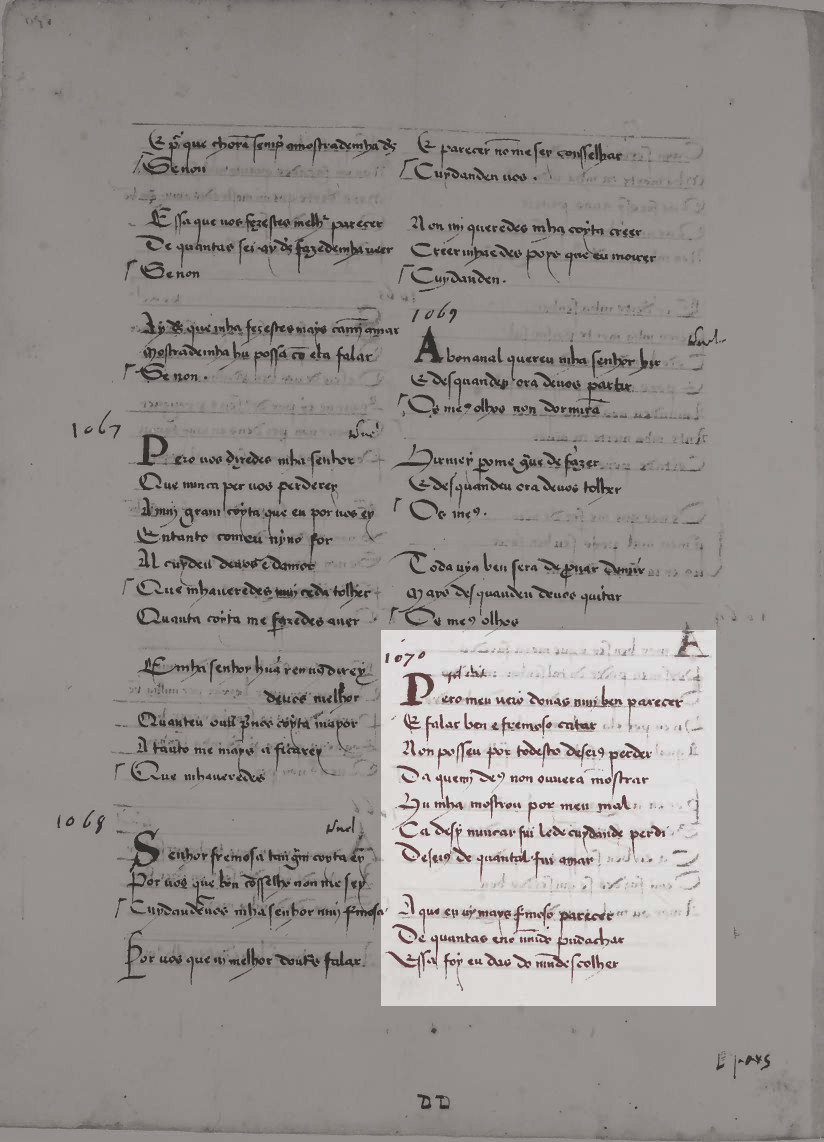 Senon
Essa que uos fezestes melhr parecer
De quantas sei ay ds fazedemha ueer
Senon
Ay ds que mha fezestes mays cami amar
Mostrademha hu possa cō ela falar
Se non .
1067
Pero uos dizedes mha senhor
Que nunca per uos perderey
A mui gram coyta que eu por uos ey
Entanto comeu uyuo for
Al cuydeu deuos e damor
Que mhaueredes mui ceda tolher
Quanta coyta me fazedes auer
E mha senhor hūa ren uos direy
deuos melhor
A tanto me mays a ficarey
Que mhaueredes
1068
Senhor fremosa tan grā coyta ey
Por uos que bon cōsselho non me sey
Cuydanden uos mha senhor mui fmosa
Por uos que ui melhor doutrs falar.
E parecer nō me sey consselhar
Cuydanden uos .
Non mi queredes mha coyta creer
Creer mha edes poys que eu morrer
Cuydanden.
1069
A bonanal quereu mha senhor hir
E desquandeu ora deuos partir
Os me9 olhos non dormirā
Hirmey pome gue de fazer
E desquandeu ora deuos tolher
Os me9.
Toda uya ben sera de prouar
Mays desquandeu deuos quitar
Os me9 olhos
1070
Pero meu ueio donas mui ben parecer
E falar ben e fremoso catar
Non posseu por todesto deseio perder
Da quem de9 non ouuera mostrar
Hu mha mostrou por meu mal
Ca desy nuncar fui lede cuydande perdi
Deseio de quantal fui amar
A que eu uy mays fmoso parecer
De quantas eno mūdo pudachar
Essa foy eu das do mūdescolher